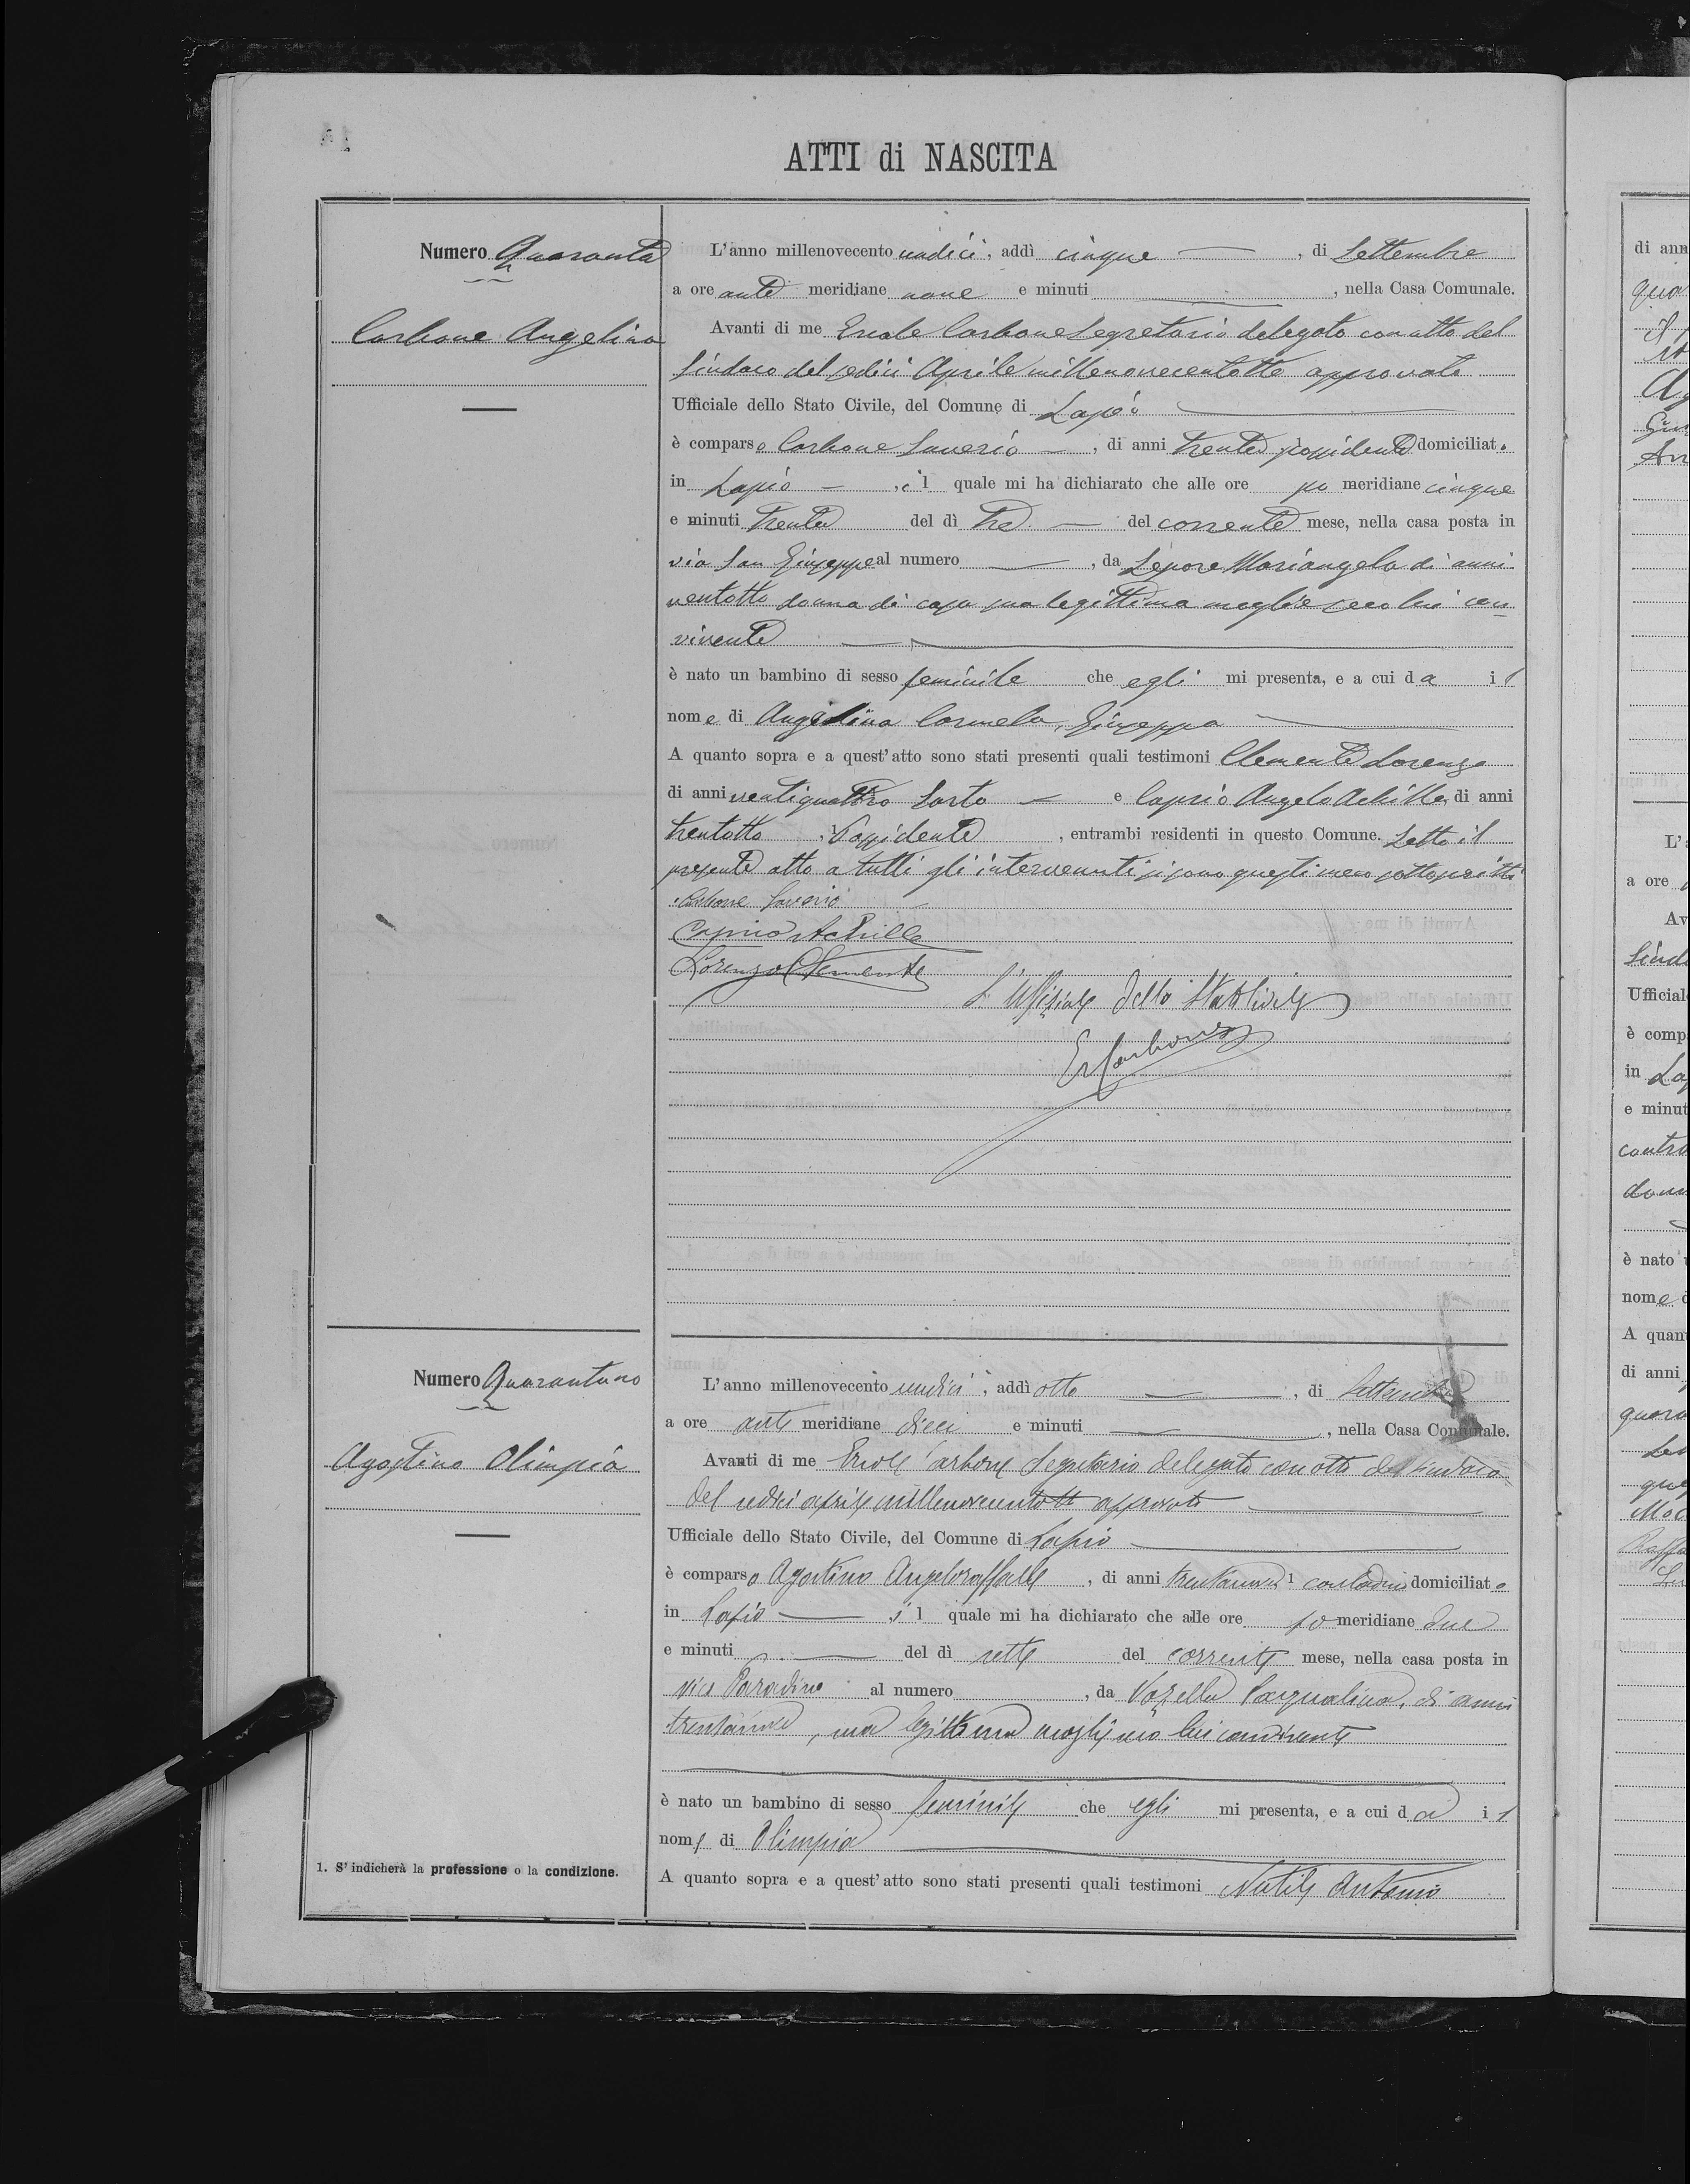 ATTI di NASCITA
Numero Quaranta
Carbone Angelina
L'anno millenovecento undici, addì cinque, di Settembre
a ore ante meridiane nove e minuti, nella Casa Comunale.
Avanti di me Ercole Carbone Segretario delegato con atto del
Sindaco del sedici Aprile millenovecentotto approvato
Ufficiale dello Stato Civile, del Comune di Lapio
è comparso Carbone Saverio, di anni trenta possidente domiciliato
in Lapio, il quale mi ha dichiarato che alle ore po meridiane cinque
e minuti trenta del dì tre del corrente mese, nella casa posta in
via San Giuseppe al numero, da Lepore Mariangela di anni
ventotto donna di casa sua legittima moglie seco lui con
vivente
è nato un bambino di sesso feminile che egli mi presenta, e a cui da il
nome di Angelina Carmela, Giuseppa
A quanto sopra e a quest'atto sono stati presenti quali testimoni Clemente Lorenzo
di anni ventiquattro Sarto e Caprio Angelo Achille, di anni
trentotto Possidente, entrambi residenti in questo Comune. Letto il
presente atto a tutti gli intervenuti si sono questi meco sottoscritti
Carbone Saverio
Caprio Achille
Lorenzo Clemente
L'Uffiziale dello Stato Civile
E. Carbone
Numero Quarantuno
Agostino Olimpia
L'anno millenovecento undici, addì otto, di Settembre
a ore ante meridiane dieci e minuti, nella Casa Comunale.
Avanti di me Ercole Carbone Segretario delegato con atto del Sindaco
del sedici aprile millenovecentotto approvato
Ufficiale dello Stato Civile, del Comune di Lapio
è comparso Agostino Angeloraffaele, di anni trentanove 1 contadino domiciliato
in Lapio, il quale mi ha dichiarato che alle ore po meridiane due
e minuti del dì sette del corrente mese, nella casa posta in
vico Paradiso al numero, da Pasqualina, di anni
trentanove, sua legittima moglie seco lui convivente
è nato un bambino di sesso feminile che egli mi presenta, e a cui da il
nome di Olimpia
A quanto sopra e a quest'atto sono stati presenti quali testimoni Nutile Antonio
1. S'indicherà la professione o la condizione.